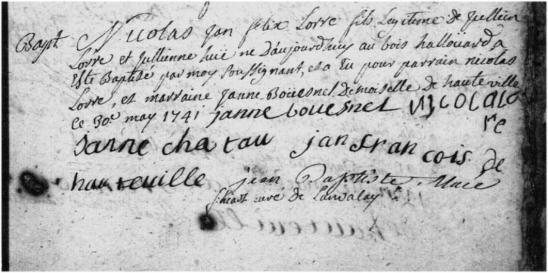 Bapt Nicolas Jan felix Lorre fils Legitime de Jullien
Lorre et Jullienne huié né D'aujourd'huy au bois hallouard a
Esté Baptisé par moy soussignant, et a Eu pour parrain nicolas
Lorre, et marraine Janne Bouësnel demoiselle de hauteville
ce 30e may 1741 janne bouesnel nicolas Lo
re
Janne chatau jan fran cois de
hauteuille
jean Baptiste Macé
curé de Lanvalay